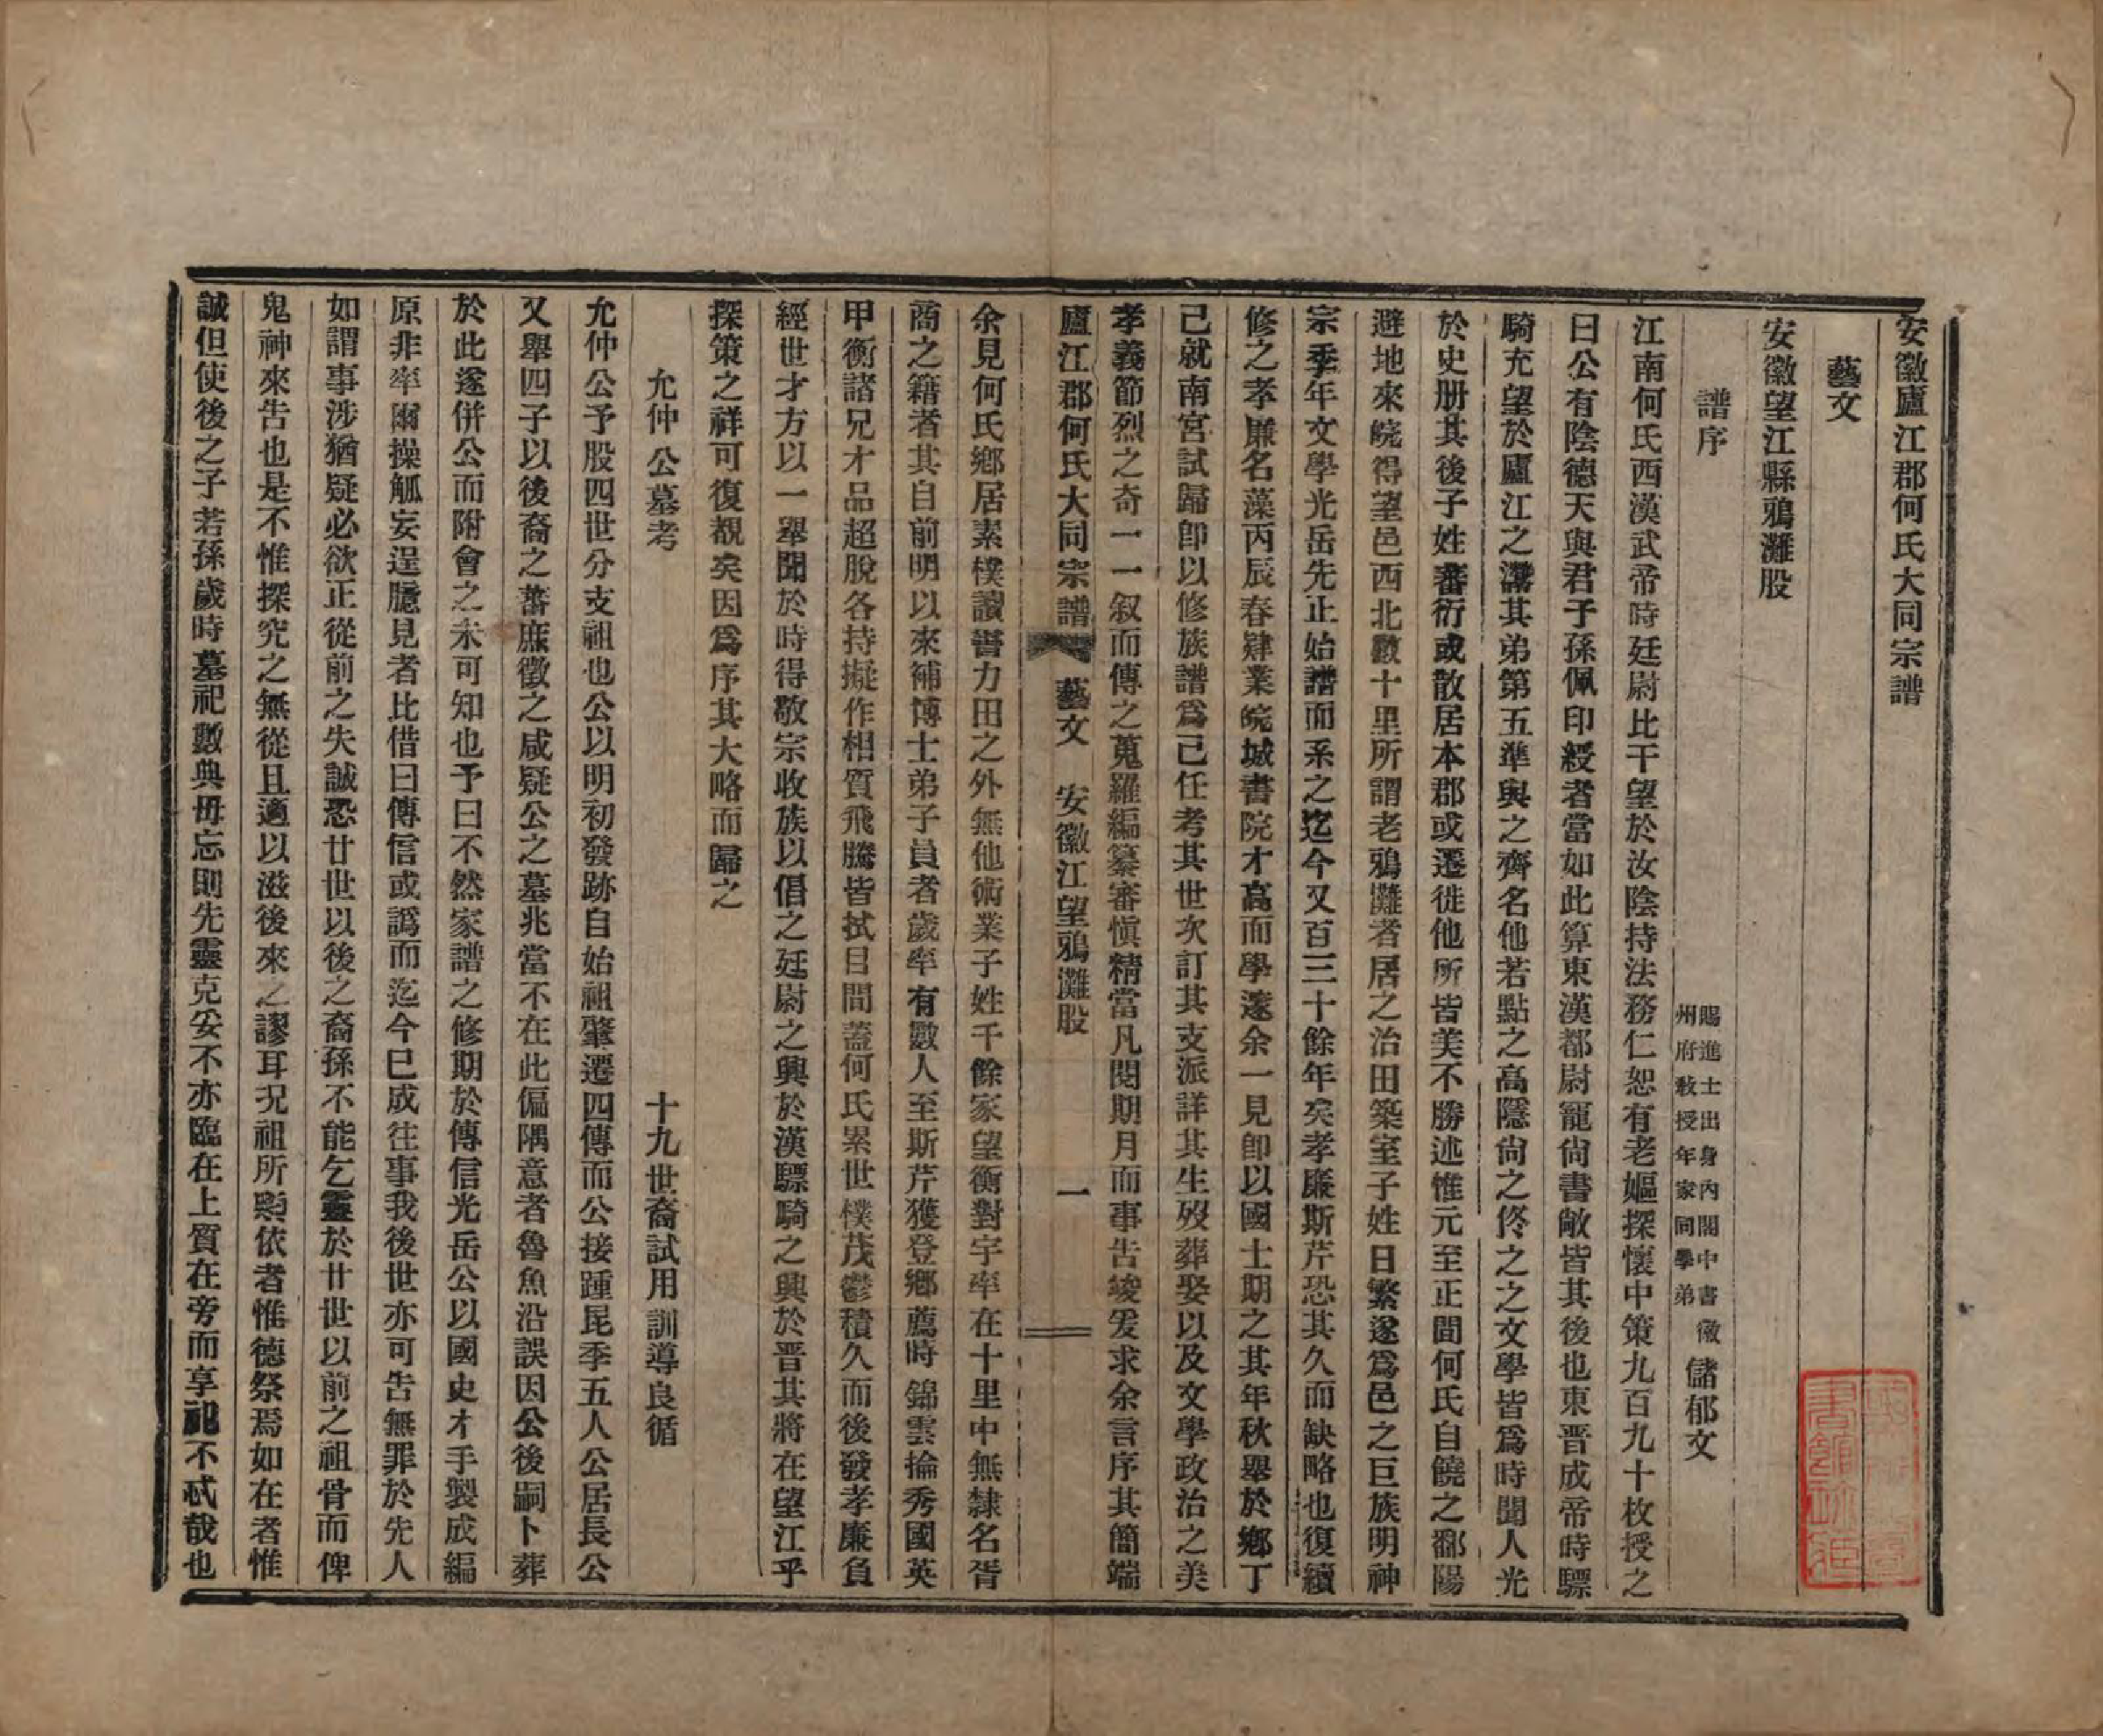 安徽廬江郡何氏大同宗譜
藝文
安徽望江縣鴉灘股
譜序
賜進士出身內閣中書徽
州府教授年家同學弟
儲郁文
江南何氏西漢武帝時廷尉比干望於汝陰持法務仁恕有老嫗探懷中策九百九十枚授之
曰公有陰德天與君子孫佩印綬者當如此算東漢都尉寵尙書敞皆其後也東晋成帝時驃
騎充望於廬江之灊其弟第五準與之齊名他若點之高隱尙之佟之之文學皆爲時聞人光
於史册其後子姓蕃衍或散居本郡或遷徙他所皆美不勝述惟元至正間何氏自饒之鄱陽
避地來皖得望邑西北數十里所謂老鴉灘者居之治田築室子姓日繁遂爲邑之巨族明神
宗季年文學光岳先止始譜而系之迄今又百三十餘年矣孝廉斯芹恐其久而缺略也復續
修之孝廉名藻丙辰春肄業皖城書院才高而學邃余一見卽以國士期之其年秋舉於鄉丁
己就南宮試歸卽以修族譜爲己任考其世次訂其支派詳其生歿葬娶以及文學政治之美
孝義節烈之奇一一叙而傳之蒐羅編纂審愼精當凡閱期月而事告竣爰求余言序其簡端
廬江郡何氏大同宗譜 藝文 安徽江望鴉灘股 一
余見何氏鄉居素樸讀書力田之外無他術業子姓千餘家望衡對宇率在十里中無隸名胥
商之籍者其自前明以來補博士弟子員者歲率有數人至斯芹獲登鄉薦時錦雲掄秀國英
甲衡諸兄才品超脫各持擬作相質飛騰皆拭目間蓋何氏累世樸茂鬱積久而後發孝廉負
經世才方以一舉聞於時得敬宗收族以倡之廷尉之興於漢驃騎之興於晋其將在望江乎
探策之祥可復覩矣因爲序其大略而歸之
允仲公墓考
十九世裔試用訓導良循
允仲公予股四世分支祖也公以明初發跡自始祖肇遷四傳而公接踵昆季五人公居長公
又舉四子以後裔之蕃庶徵之咸疑公之墓兆當不在此偏隅意者魯魚沿誤因公後嗣卜葬
於此遂併公而附會之未可知也予曰不然家譜之修期於傳信光岳公以國史才手製成編
原非率爾操觚妄逞臆見者比借曰傳信或譌而迄今已成往事我後世亦可告無罪於先人
如謂事涉猶疑必欲正從前之失誠恐廿世以後之裔孫不能乞靈於廿世以前之祖骨而俾
鬼神來告也是不惟探究之無從且適以滋後來之謬耳況祖所凴依者惟德祭焉如在者惟
誠但使後之子若孫歲時墓祀數典毋忘則先靈克妥不亦臨在上質在旁而享祀不忒哉也